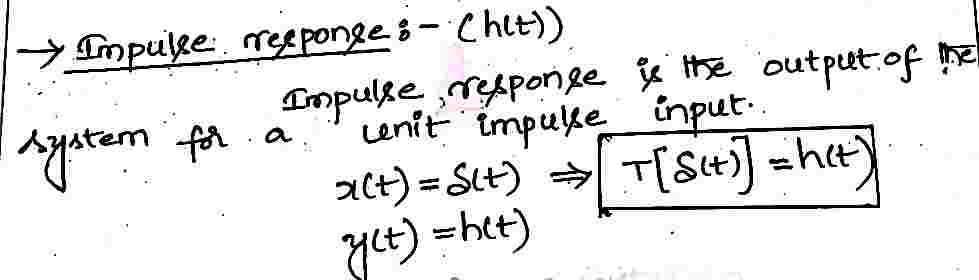 → Impulse response :- (h(t))
Impulse response is the output of the
system for a unit impulse input.
x(t) = δ(t) ⇒ T[δ(t)] = h(t)
y(t) = h(t)